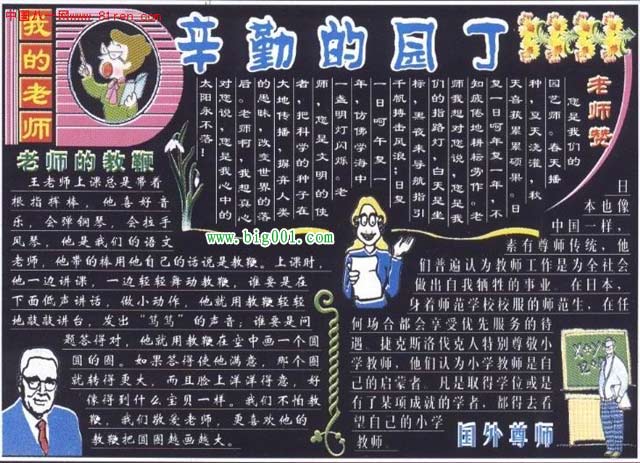 中国八一网www.81ren.com
我的老师
辛勤的园丁
老师赞
您是我们的
园艺师。春天播
种，夏天浇灌，秋
天喜获累累硕果。日
复一日年复一年，不
知疲倦地耕耘劳作。老
师我想对您说，您是我
们的指路灯，白天是坐
标，黑夜来导航指引
千帆搏击风浪；日复
一日呵年复一
年，仿佛学海中
一盏明灯闪烁。老
师，您是文明的使
者，把科学的种子在
大地传播，摒弃人类
的愚昧，改变世界的落
后。老师啊，我想真心
对您说，您是我心中的
太阳永不落！
老师的教鞭
王老师上课总是带着
根指挥棒，他喜好音
乐，会弹钢琴，会拉手
风琴，他是我们的语文
老师，他带的棒用他自己的话说是教鞭。上课时，
他一边讲课，一边轻轻舞动教鞭，谁要是在
下面低声讲话，做小动作，他就用教鞭轻轻
地敲敲讲台，发出“笃笃”的声音；谁要是问
题答得对，他就用教鞭在空中画一个圆
圆的圈。如果答得使他满意，那个圈
就转得更大，而且脸上洋洋得意，好
像得到什么宝贝一样。我们不怕教
鞭，我们敬爱老师，更喜欢他的
教鞭把圆圈越画越大。
www.big001.com
日
本也像
中国一样，
素有尊师传统，他
们普遍认为教师工作是为全社会
做出自我牺牲的事业。在日本，
身着师范学校校服的师范生，在任
何场合都会享受优先服务的待
遇。捷克斯洛伐克人特别尊敬小
学教师，他们认为小学教师是自
己的启蒙者。凡是取得学位或是
有了某项成就的学者，都得去看
望自己的小学
教师。
国外尊师